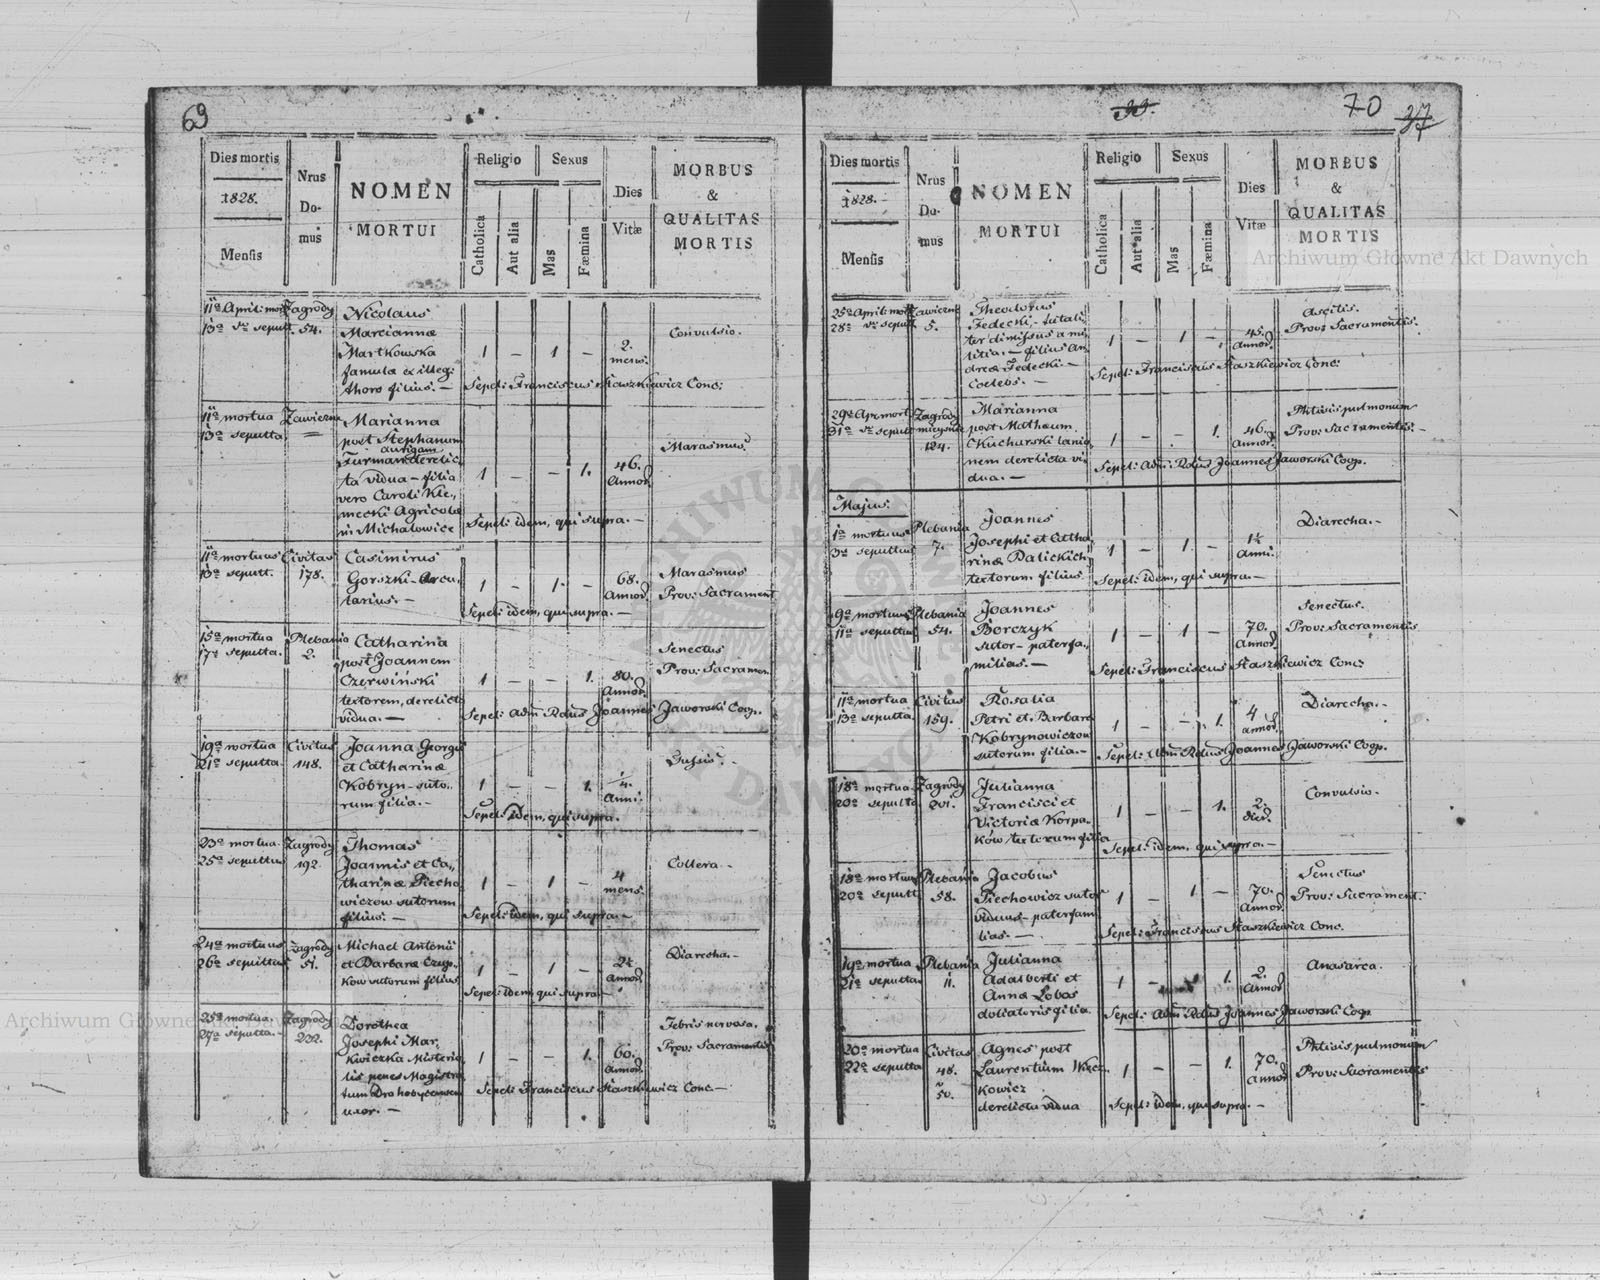 69
Dies mortis
1828.
Mensis
Nrus
Do-
mus
NOMEN
MORTUI
Religio
Catholica
Aut alia
Sexus
Mas
Fæmina
Dies
Vitæ
MORBUS
&
QUALITAS
MORTIS
11a April: mort
13a seput.
Zagrody
54.
Nicolaus
Mariannæ
Martkowska
famulæ ex illeg:
thoro filius. —
1 — 1 —
2.
mens.
Convulsio.
Sepel: Franciscus Staszkiewicz Conc:
11a mortua
13a sepulta
Zawiezna
—
Marianna
post Stephanum
aurigam
Furman derelic,
ta vidua — filia
vero Caroli Kle,,
mecki Agricolæ
in Michałowice
1 — 1.
46.
Annor.
Marasmus.
Sepel: idem, qui supra. —
11a mortuus
13a sepult.
Civitas
178.
Casimirus
Gorszki — Arcu,
larius. —
1 — 1. —
68.
Annor.
Marasmus
Prov: Sacrament
Sepel: idem, qui supra. —
15a mortua
17a sepulta.
Plebania
2.
Catharina
post Joannem
Czerwiński
textorem, derelicta
vidua. —
1 — — 1.
80.
Annor.
Senectus
Prov: Sacramen.
Sepel: Adm Rdus Joannes Jaworski Coop.
19a mortua
21a sepulta
Civitas
148.
Joanna Georgii
et Catharinæ
Kobryn — suto,,
rum filia. —
1 — — 1.
Anni.
Tussis. —
Sepel: idem, qui supra.
23a mortua.
25a sepultus
Zagrody
192.
Thomas
Joannis et Ca,,
tharinæ Piecho,
wiczow sutorum
filius. —
1 — 1 —
4
mens.
Collera. —
Sepel: idem, qui supra —
24a mortuus
26a sepultus
Zagrody
51.
Michael Antonii
et Barbaræ Czup,,
kow sutorum filius
1 — 1 —
Annor.
Diarecha. —
Sepel: idem qui supra —
25a mortua.
27a sepulta.
Zagrody
232.
Dorothea
Josephi Mar,,
kwiczka Misteria,
lis penes Magistra,
tum Drohobycensem
uxor. —
1 — — 1.
60.
Annor.
Febris nervosa.
Prov: Sacramentis
Sepel: Franciscus Staszkiewicz Conc —
70
37
Dies mortis
1828.
Mensis
Nrus
Do-
mus
NOMEN
MORTUI
Religio
Catholica
Aut alia
Sexus
Mas
Fæmina
Dies
Vitæ
MORBUS
&
QUALITAS
MORTIS
25a April: mort
28a sepult
Zawiezne
5.
Theodorus
Fedecki,
ter dimissus a mi
litia. — filius An
dreæ Fedecki —
Coelebs. —
1 — 1 —
45.
Annor.
Ascitis.
Prov: Sacramentis.
Sepel: Franciscus Staszkiewicz Conc:
29a Apr. mort
31a sepult
Zagrody
mieyskie
124.
Marianna
post Mathæum
Kucharski lanio,
nem derelicta vi
dua. —
1 — — 1.
46.
Annor.
Phtisis pulmonum
Prov: Sacramentis. —
Sepel: Adm: Rdus Joannes Jaworski Coop.
Majus.
1a mortuus
3a sepultus
Plebania
7.
Joannes
Josephi et Catha
rinæ Dalickich
textorum filius
1 — 1. —
Anni.
Diarecha. —
Sepel: idem, qui supra —
9a mortuus
11a sepultus
Plebania
54.
Joannes
Borczyk
sutor — paterfa,,
milias. —
1 — 1 —
70.
Annor.
Senectus.
Prov: Sacramentis
Sepel: Franciscus Staszkiewicz Conc:
11a mortua
13a sepulta.
Civitas
159.
Rosalia
Petri et Barbaræ
Kobrynowiczow
sutorum filia. —
1 — — 1.
4
annor.
Diarecha. —
Sepel: Adm Rdus Joannes Jaworski Coop.
18a mortua.
20a sepulta
Zagrody
201.
Julianna
Francisci et
Victoriæ Korpa,
ków textorum filia
1 — — 1.
2.
dier.
Convulsio. —
Sepel: idem, qui supra. —
18a mortuus
20a sepult
Plebania
58.
Jacobus
Piechowicz sutor
viduus — paterfam
lias. —
1 — 1 —
70.
Annor.
Senectus
Prov: Sacrament.
Sepel: Franciscus Staszkiewicz Conc.
19a mortua
21a sepulta
Plebania
11.
Julianna
Adalberti et
Annæ Lobos
doliatoris filia
1 — 1.
2.
Annor
Anasarca.
Sepel: Adm Rdus Joannes Jaworski Coop
20a mortua
22a sepulta
Civitas
48.
50.
Agnes post
Laurentium
kowicz
derelicta vidua
1 — — 1.
70.
Annor
Phtisis pulmonum
Prov: Sacramentis
Sepel: idem, qui supra. —
Archiwum Główne Akt Dawnych
Archiwum Główne Akt Dawnych
ARCHIWUM GŁÓWNE AKT DAWNYCH